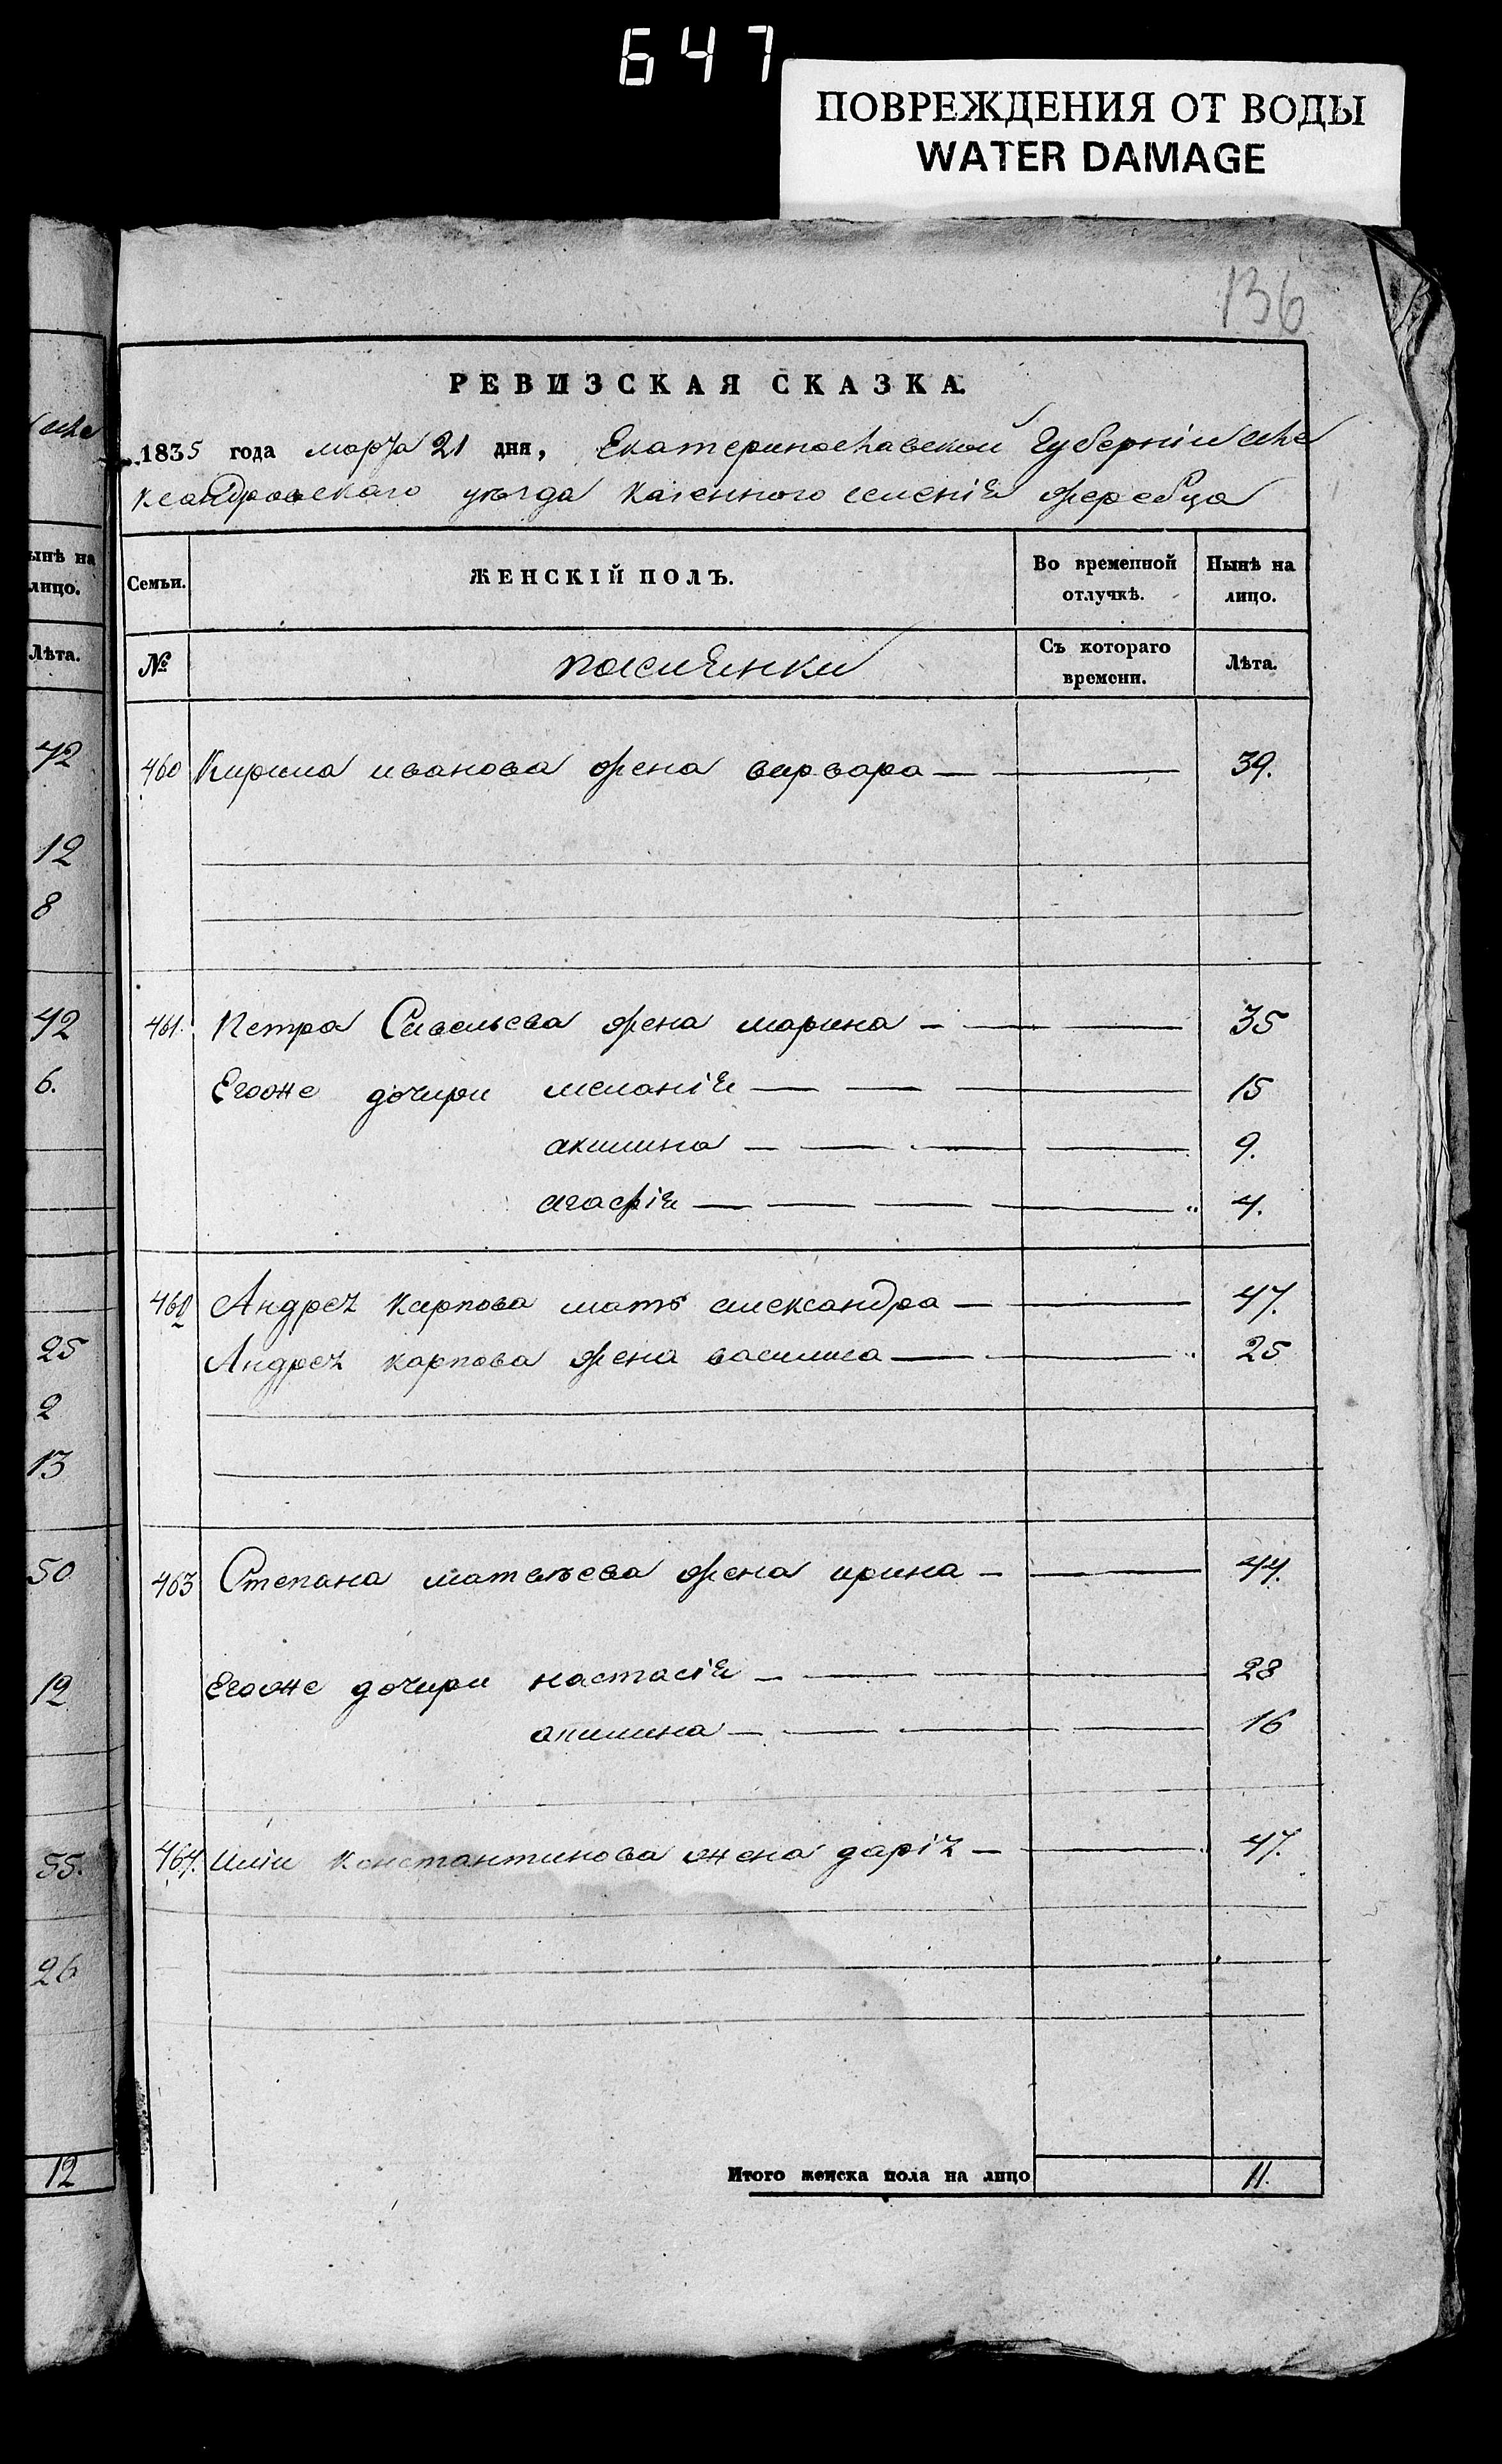 647
ПОВРЕЖДЕНИЯ ОТ ВОДЫ
WATER DAMAGE
136
РЕВИЗСКАЯ СКАЗКА.
1835 года марта 21 дня, Екатеринославской губерніи але
ксандровскаго уезда казенного селенія жеребца
ынѣ на
лицо.
Лѣта.
Семьи.
ЖЕНСКІЙ ПОЛЪ.
Во временной
отлучкѣ.
Нынѣ на
лицо.
№
Съ котораго
времени.
Лѣта.
460 Кирила иванова жена варвара 39.
461. Петра Савельева жена марина 35
Егоже дочери меланія 15
акилина 9.
агафія 4.
462 Андрея карпова мать александра 47.
Андрея карпова жена василиса 25
463 Степана матвѣева жена ирина 44.
Егоже дочери настасія 28
акилина 16
464. илїи константинова жена дарія 47.
Итого женска пола на лицо 11.
72
12
8
42
6.
25
2
13
50
12
55.
26
12